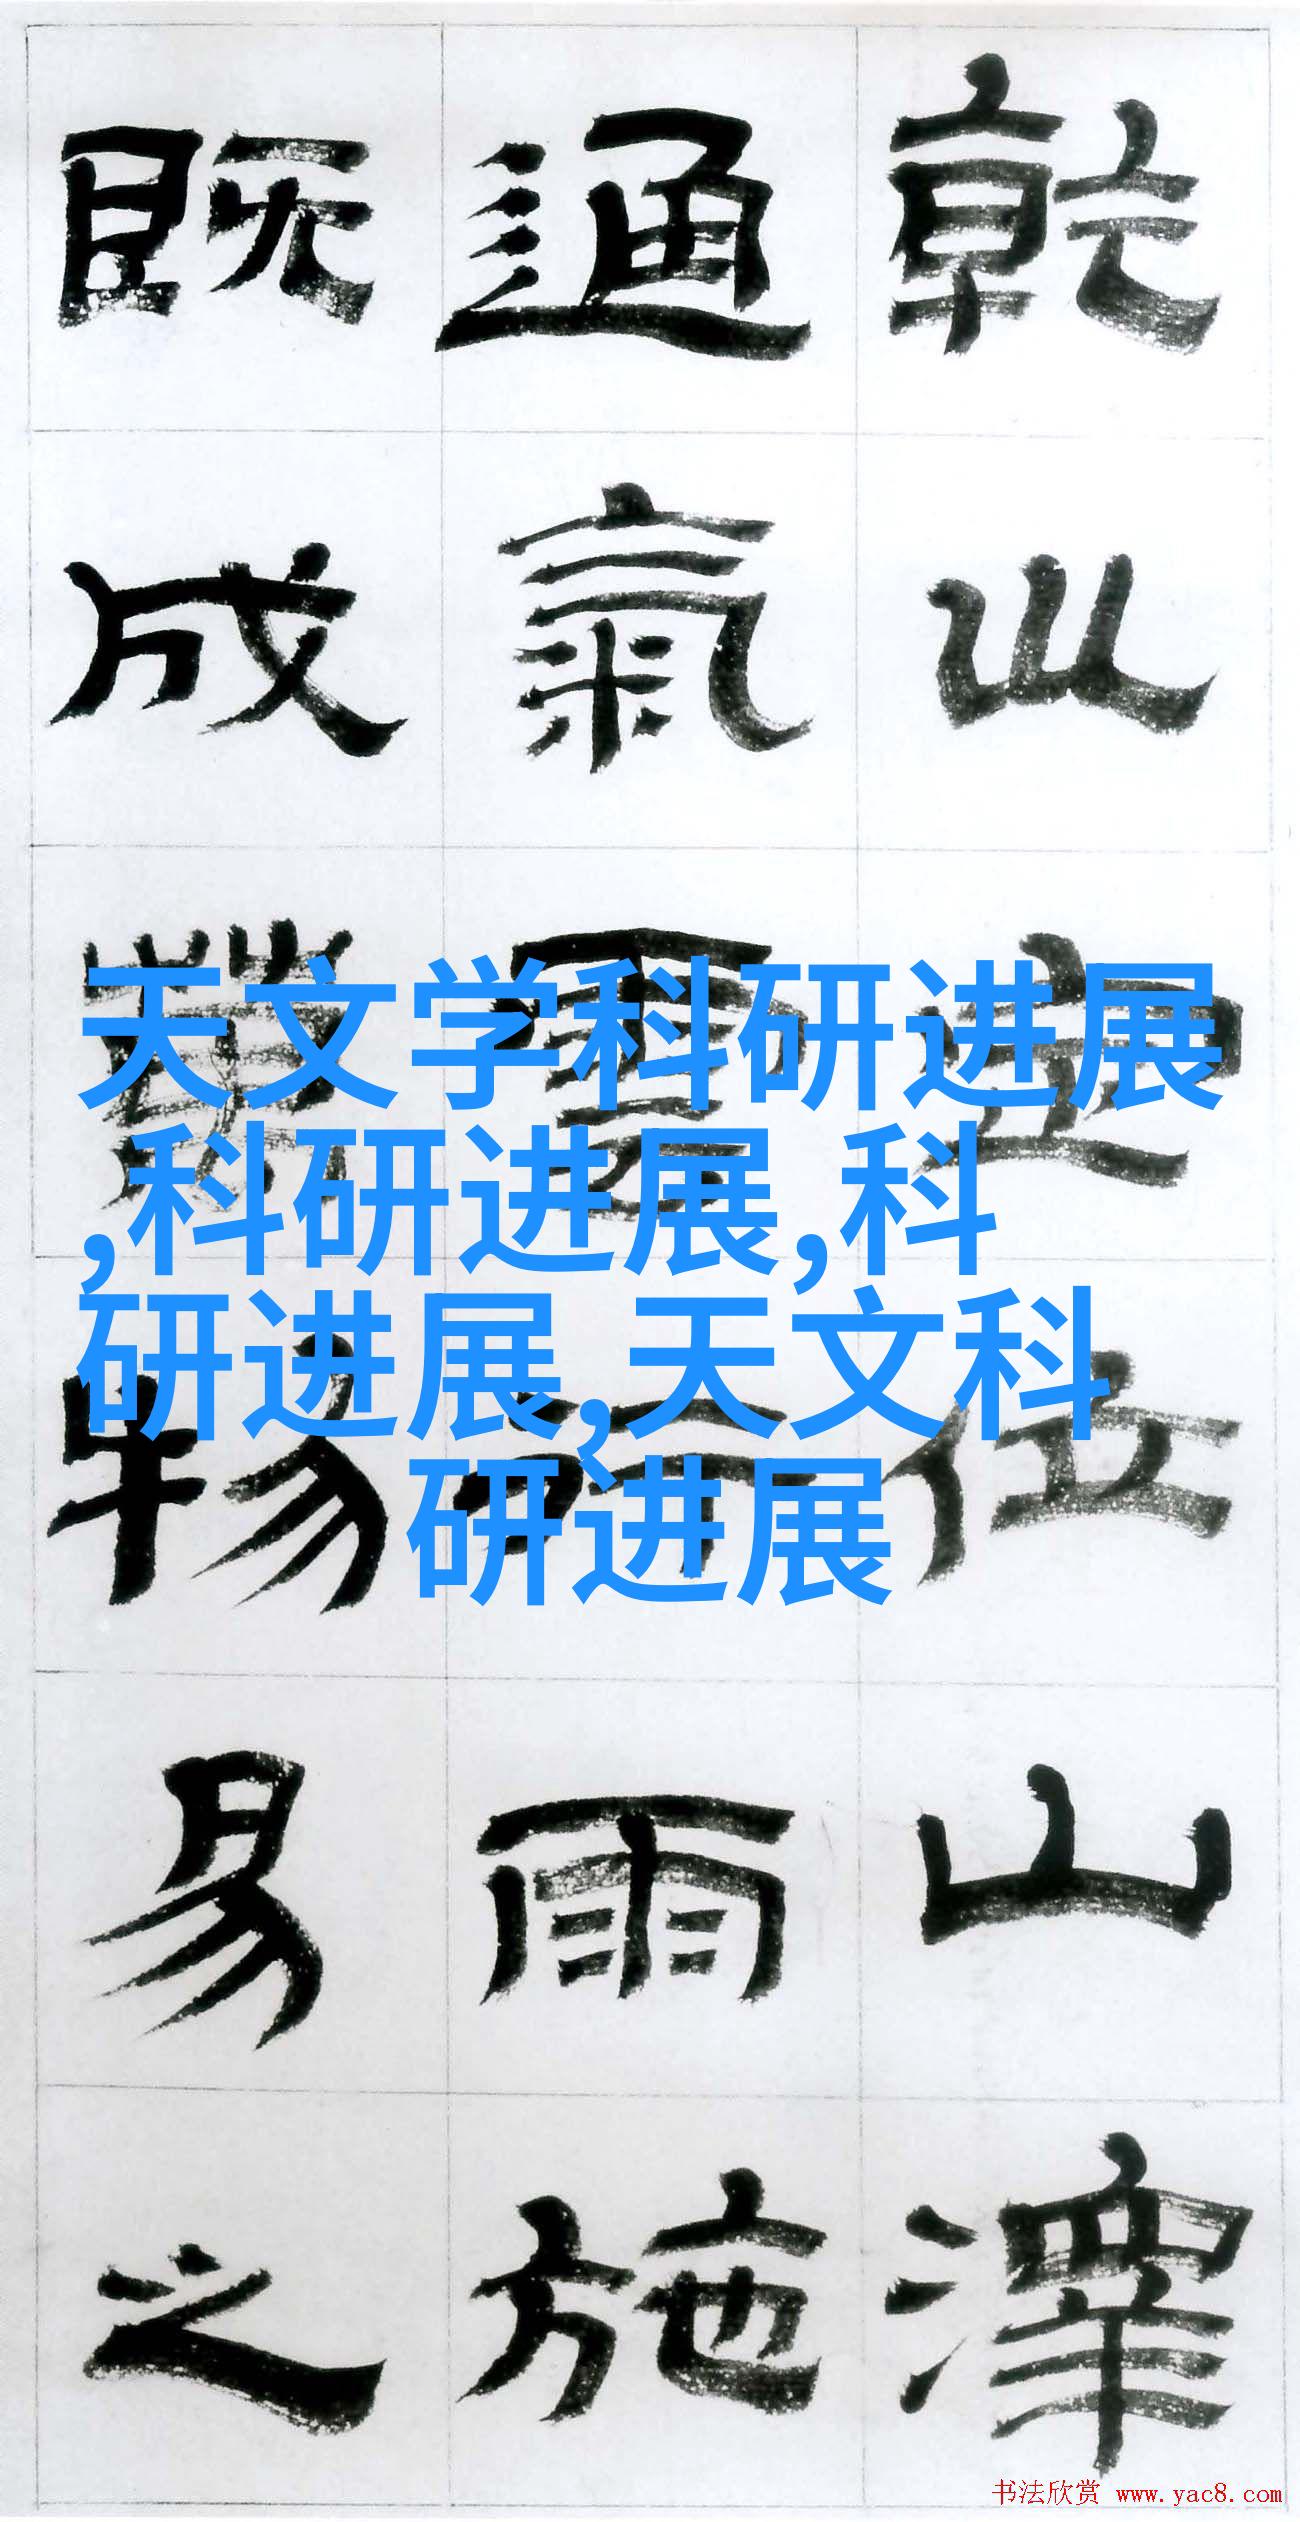 天文学科研进展
,科研进展,科
研进展,天文科
研进展
乾巛定位山澤
通氣雲行雨施
既成物易之
书法欣赏 www.yac8.com